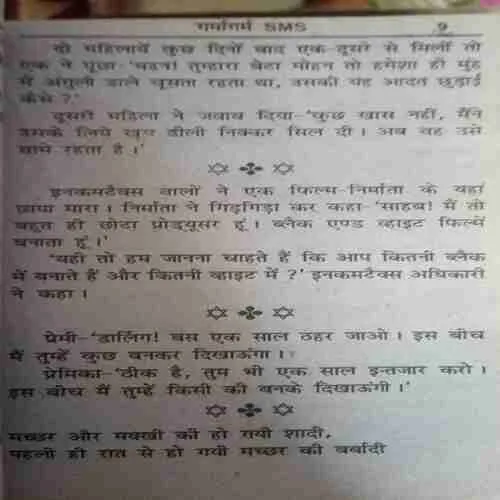 गर्मागर्म SMS 9
दो महिलायें कुछ दिनों बाद एक-दूसरे से मिलीं तो
एक ने पूछा-'बहन! तुम्हारा बेटा मोहन तो हमेशा ही मुंह
में अंगुली डाले चूसता रहता था, उसकी यह आदत छुड़ाई
कैसे ?'
दूसरी महिला ने जवाब दिया-'कुछ खास नहीं, मैंने
उसके लिये खूब ढीली निक्कर सिल दी। अब वह उसे
थामे रहता है।'
इनकमटैक्स वालों ने एक फिल्म-निर्माता के यहां
छापा मारा। निर्माता ने गिड़गिड़ा कर कहा-'साहब! मैं तो
बहुत ही छोटा प्रोड्यूसर हूं। ब्लैक एण्ड व्हाइट फिल्में
बनाता हूं।'
'यही तो हम जानना चाहते हैं कि आप कितनी ब्लैक
में बनाते हैं और कितनी व्हाइट में ?' इनकमटैक्स अधिकारी
ने कहा।
प्रेमी-'डार्लिंग! बस एक साल ठहर जाओ। इस बीच
मैं तुम्हें कुछ बनकर दिखाऊंगा।
प्रेमिका-'ठीक है, तुम भी एक साल इन्तजार करो।
इस बीच मैं तुम्हें किसी की बनके दिखाऊंगी।'
मच्छर और मक्खी की हो गयी शादी,
पहली ही रात से हो गयी मच्छर की बर्बादी